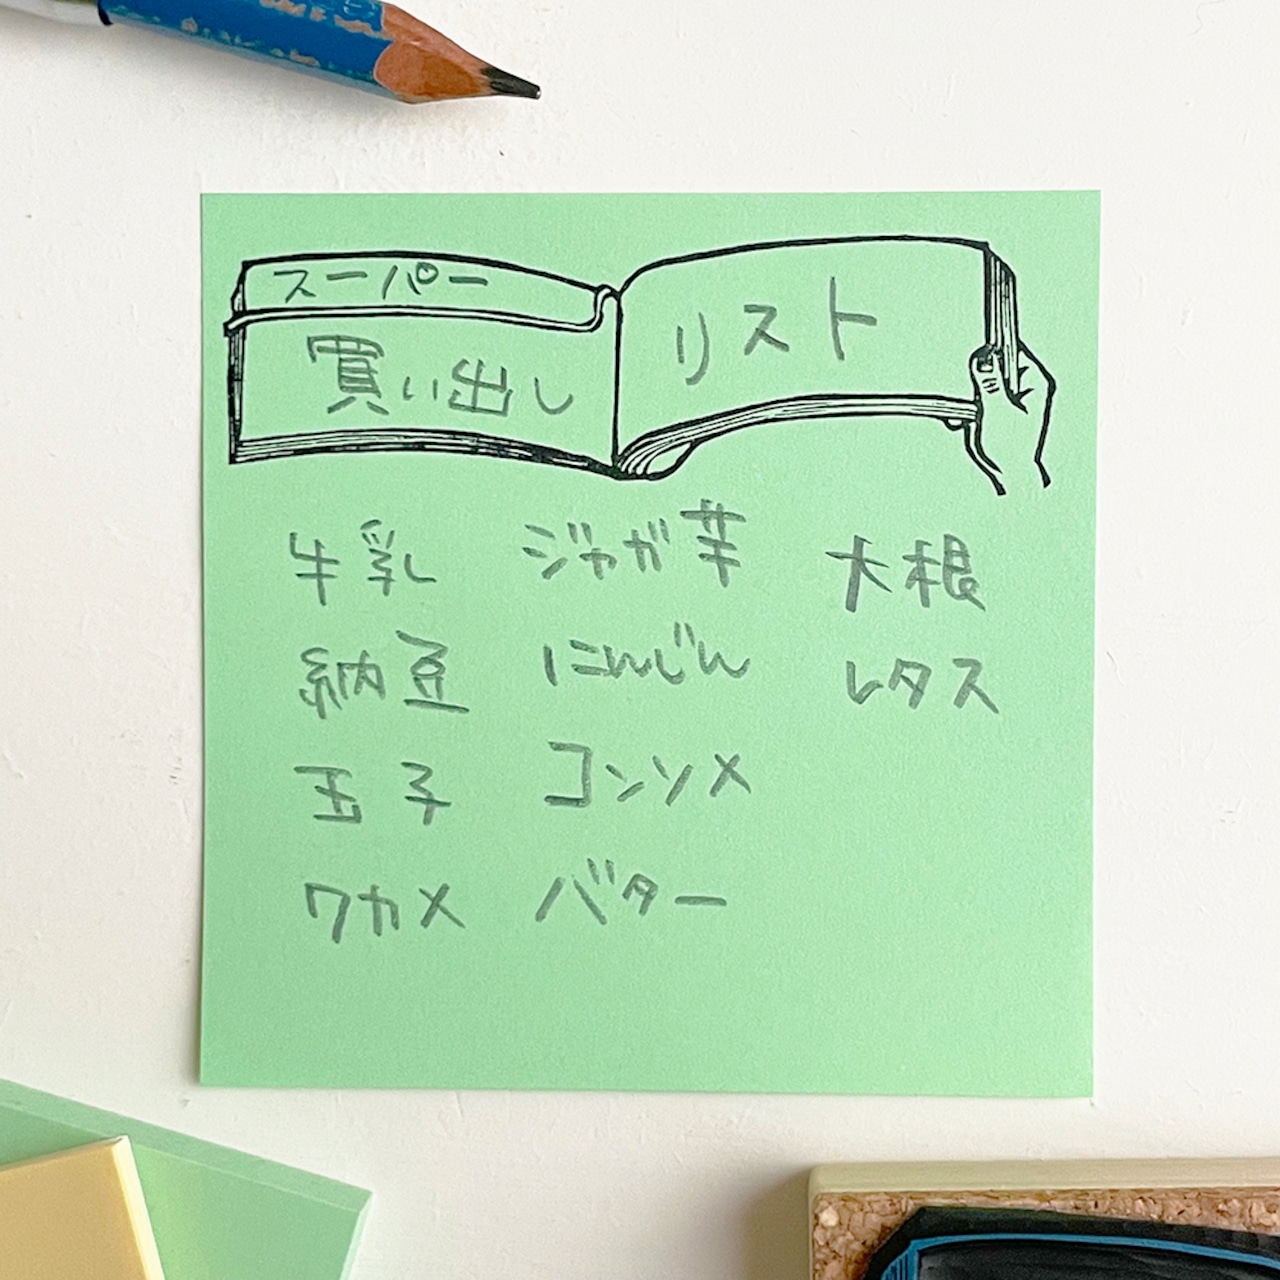 スーパー
買い出し
リスト
牛乳
納豆
玉子
ワカメ
ジャガ芋
にんじん
コンソメ
バター
大根
レタス